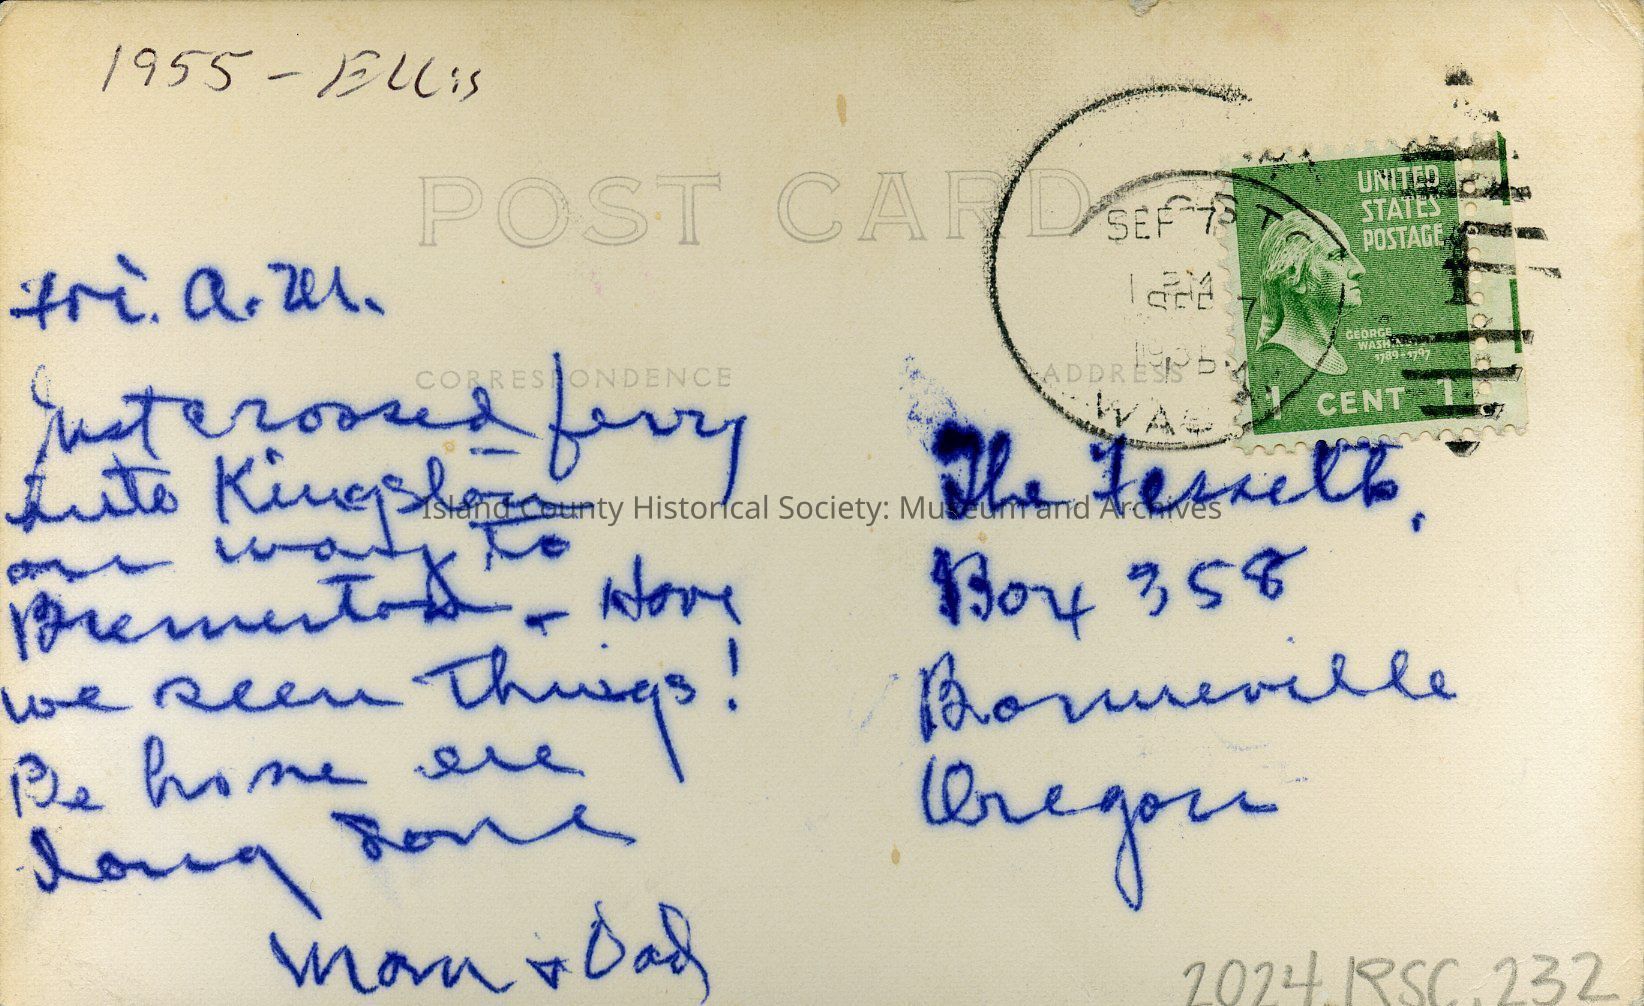 1955 - Ellis
POST CARD
SEP 7
1 PM
SEP 7
WASH
UNITED
STATES
POSTAGE
GEORGE
WASHINGTON
1789-1797
1 CENT 1
CORRESPONDENCE
ADDRESS
Fri. A.M.
Just crossed ferry
into Kingston
on way to
Bremerton - Have
we seen things!
Be home ere
long some
Mom + Dad
The
Box 358
Bonneville
Oregon
Island County Historical Society: Museum and Archives
2024.RSC.232